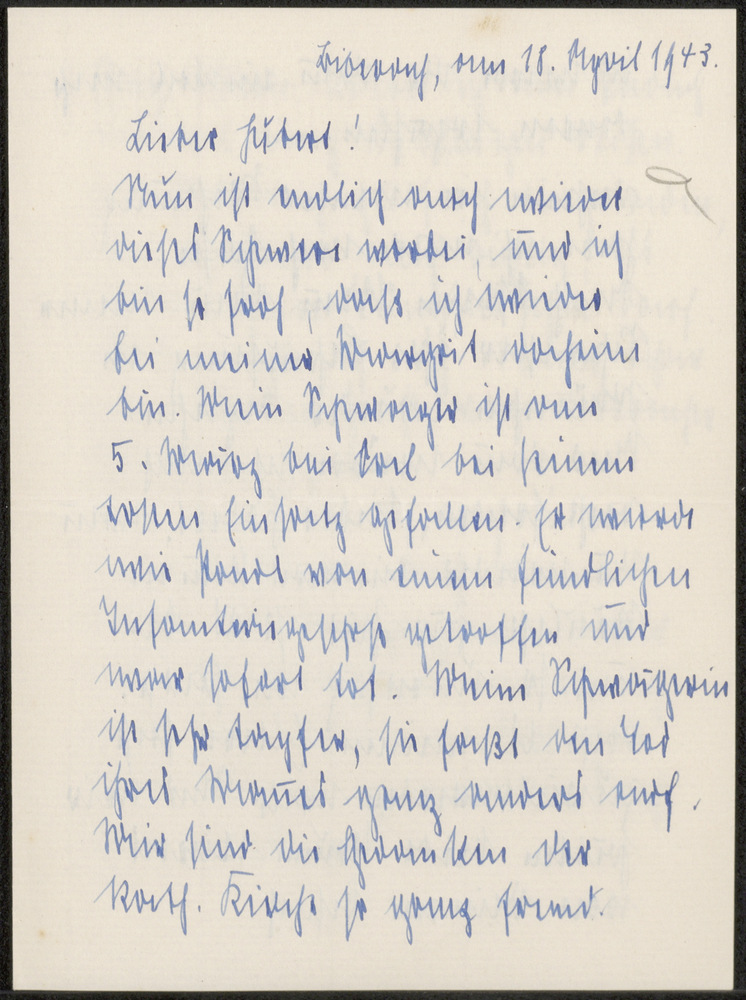 Biberach, am 18. April 1943.
Lieber Hubert!
Nun ist endlich auch wieder
dieses Schwere vorbei, und ich
bin so froh, dass ich wieder
bei meiner Margrit daheim
bin. Mein Schwager ist am
5. März bei Orel bei seinem
ersten Einsatz gefallen. Er wurde
wie von einem feindlichen
Infanteriegeschoss getroffen und
war sofort tot. Meine Schwägerin
ist sehr tapfer, sie fasst den Tod
ihres Mannes ganz anders auf.
Mir sind die Gedanken der
kath. Kirche so ganz fremd.